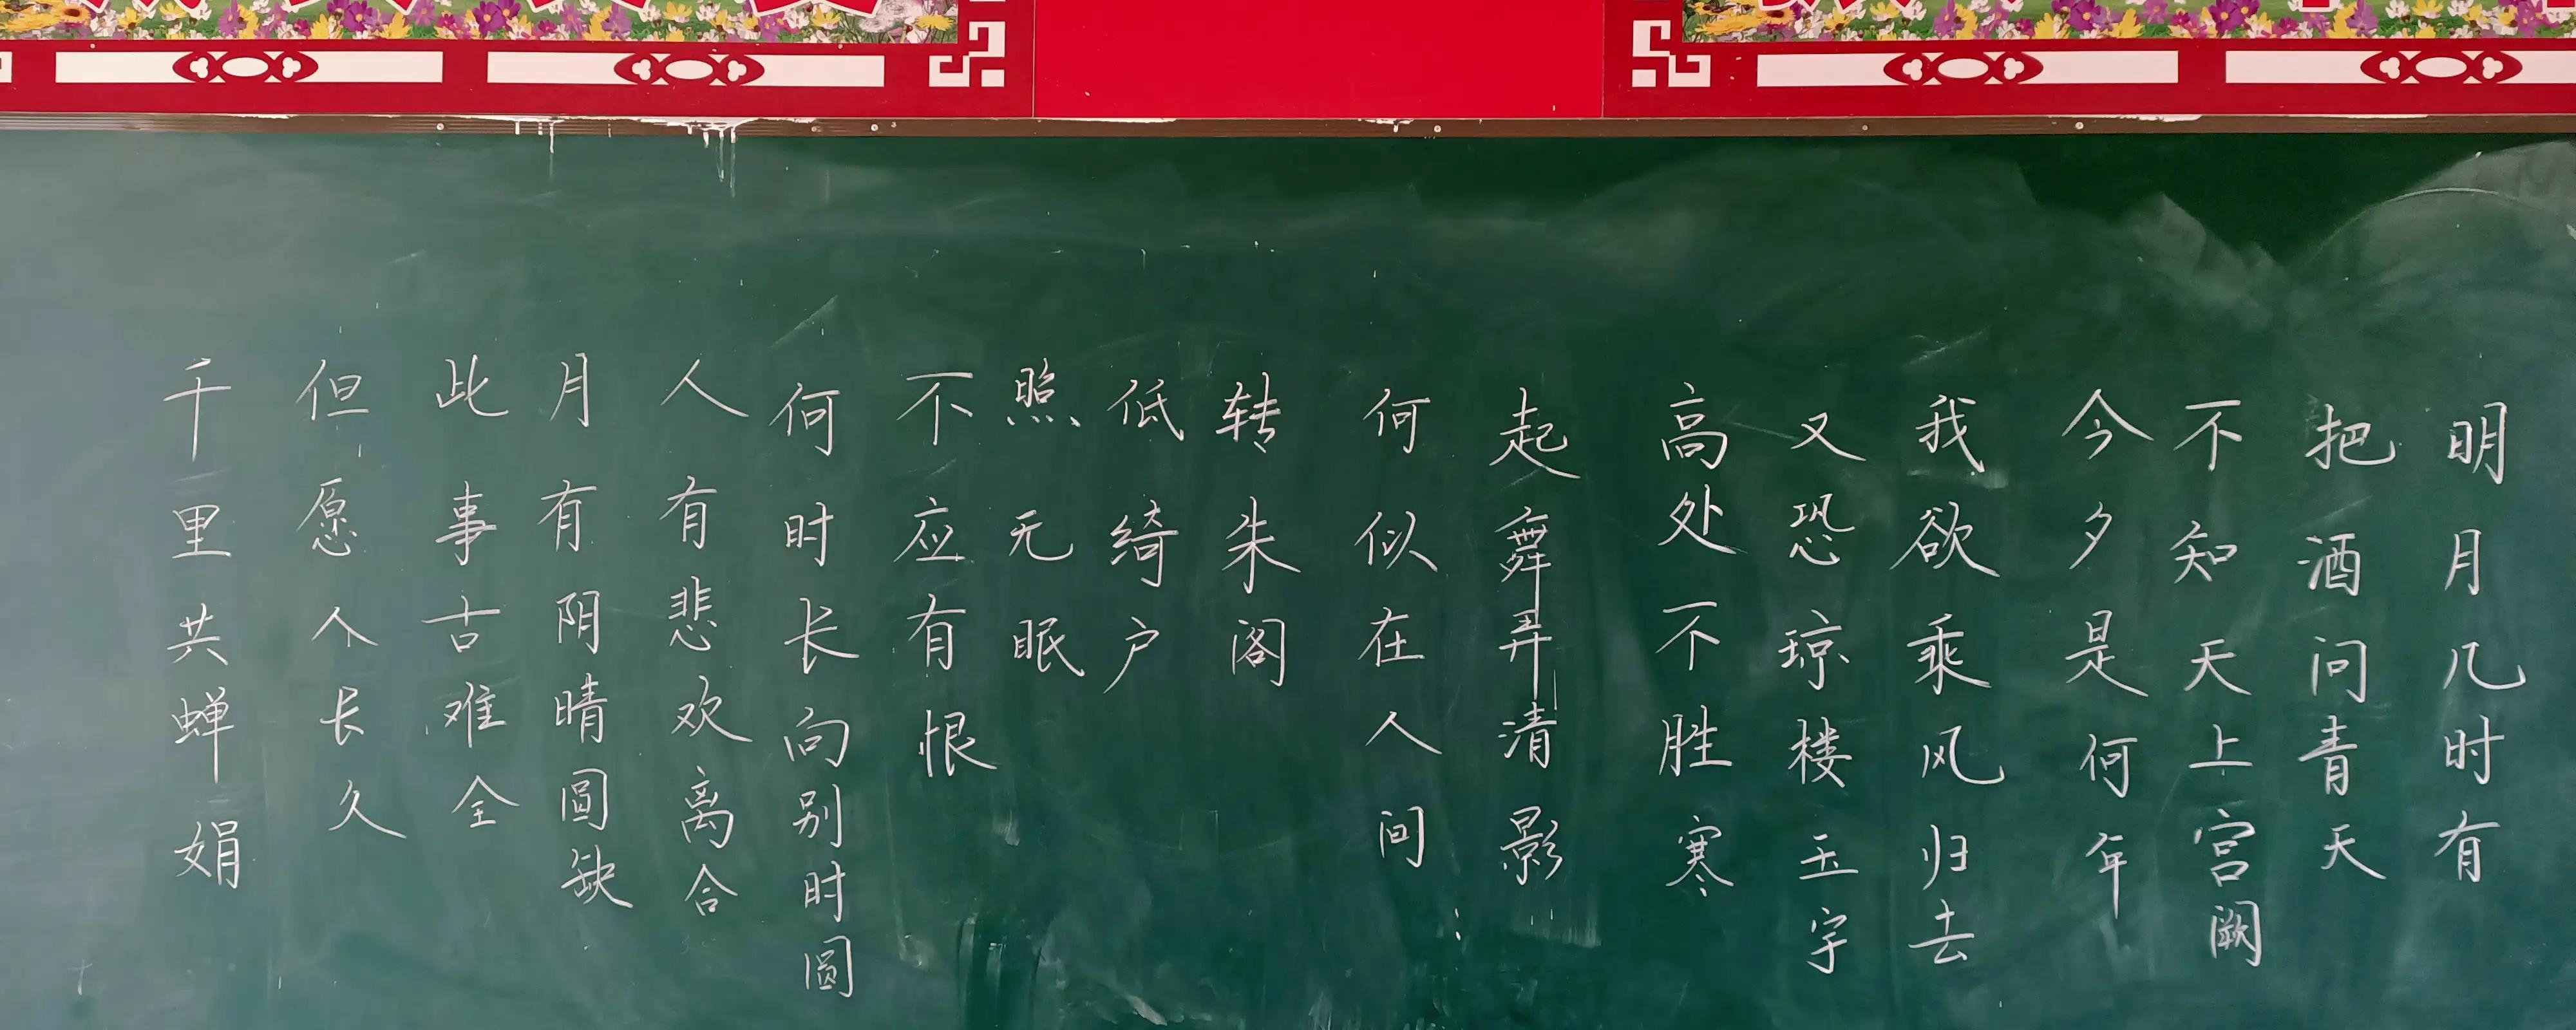 明月几时有
把酒问青天
不知天上宫阙
今夕是何年
我欲乘风归去
又恐琼楼玉宇
高处不胜寒
起舞弄清影
何似在人间
转朱阁
低绮户
照无眠
不应有恨
何时长向别时圆
人有悲欢离合
月有阴晴圆缺
此事古难全
但愿个长久
千里共蝉娟